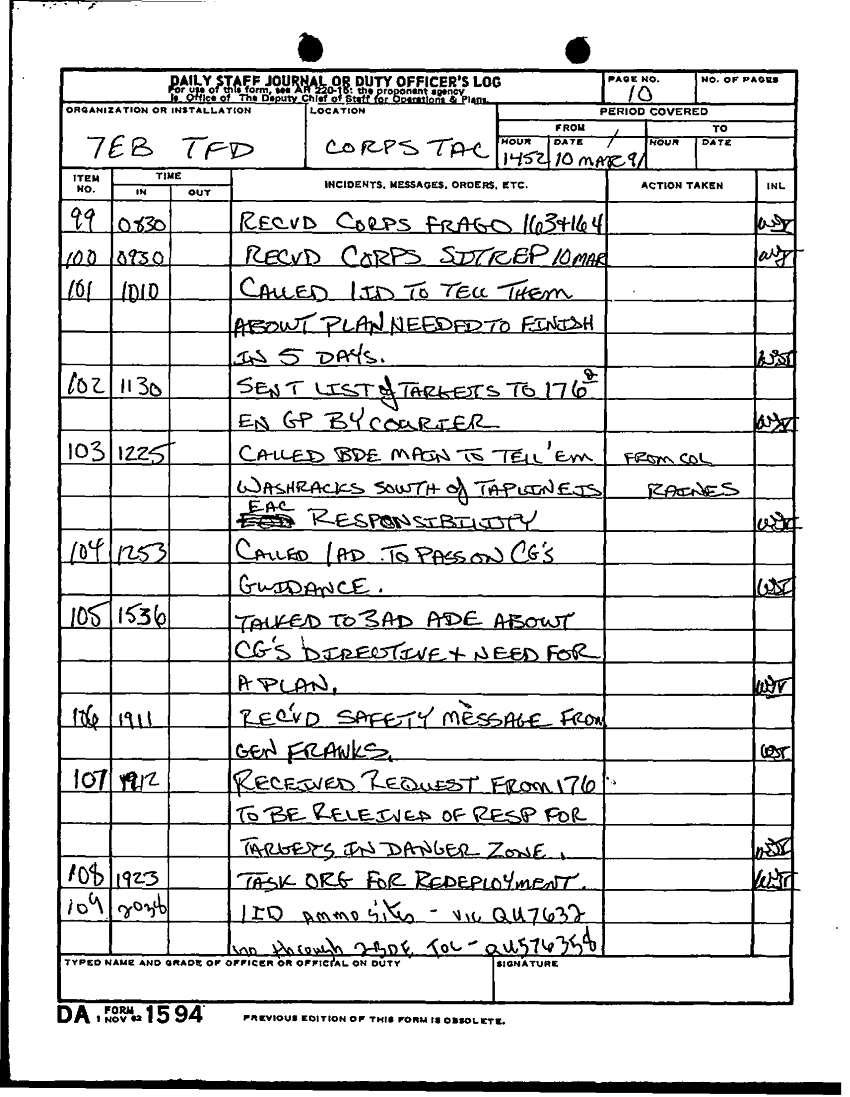 DAILY STAFF JOURNAL OR DUTY OFFICER'S LOG
For use of this form, see AR 220-15; the proponent agency
is Office of The Deputy Chief of Staff for Operations & Plans.
PAGE NO.
10
NO. OF PAGES
ORGANIZATION OR INSTALLATION
7EB TFD
LOCATION
CORPS TAC
PERIOD COVERED
FROM
TO
HOUR
1452
DATE
10 MAR 91
HOUR
DATE
ITEM NO.
TIME
IN
OUT
INCIDENTS, MESSAGES, ORDERS, ETC.
ACTION TAKEN
INL
99 0830 RECVD CORPS FRAGO 163+164
100 0930 RECVD CORPS SITREP 10 MAR
101 1010 CALLED 1ID TO TELL THEM
ABOUT PLAN NEEDED TO FINISH
IN 5 DAYS.
102 1130 SENT LIST of TARGETS TO 176
EN GP BY COURIER
103 1225 CALLED BDE MAIN TO TELL 'EM FROM COL
WASHRACKS SOUTH of TAPLINE IS RAINES
EAC RESPONSIBILITY
104 1253 CALLED 1AD TO PASS ON CG'S
GUIDANCE.
105 1536 TALKED TO 3AD ADE ABOUT
CG'S DIRECTIVE + NEED FOR
A PLAN.
106 1911 REC'VD SAFETY MESSAGE FROM
GEN FRANKS.
107 1912 RECEIVED REQUEST FROM 176
TO BE RELEIVED OF RESP FOR
TARGETS IN DANGER ZONE.
108 1923 TASK ORG FOR REDEPLOYMENT.
109 1ID ammo sites - vic QU7632
through 2BDE TOC - QU576358
TYPED NAME AND GRADE OF OFFICER OR OFFICIAL ON DUTY
SIGNATURE
DA FORM 1594
1 NOV 62
PREVIOUS EDITION OF THIS FORM IS OBSOLETE.